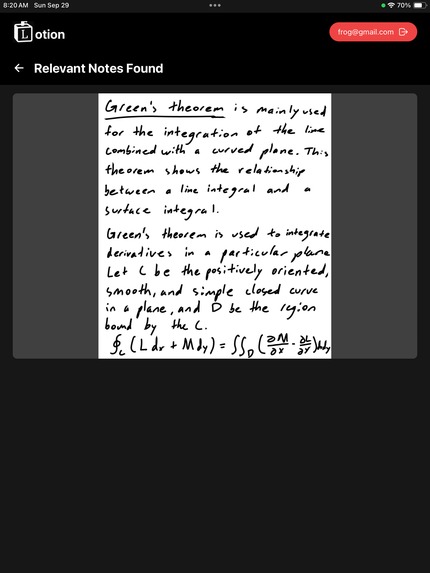 8:20 AM Sun Sep 29
70%
Lotion
frog@gmail.com
Relevant Notes Found
Green's theorem is mainly used
for the integration of the line
combined with a curved plane. This
theorem shows the relationship
between a line integral and a
surface integral.
Green's theorem is used to integrate
derivatives in a particular plane
Let C be the positively oriented,
smooth, and simple closed curve
in a plane, and D be the region
bound by the C.
∮c (L dx + M dy) = ∫∫D (∂M/∂x - ∂L/∂y) dxdy